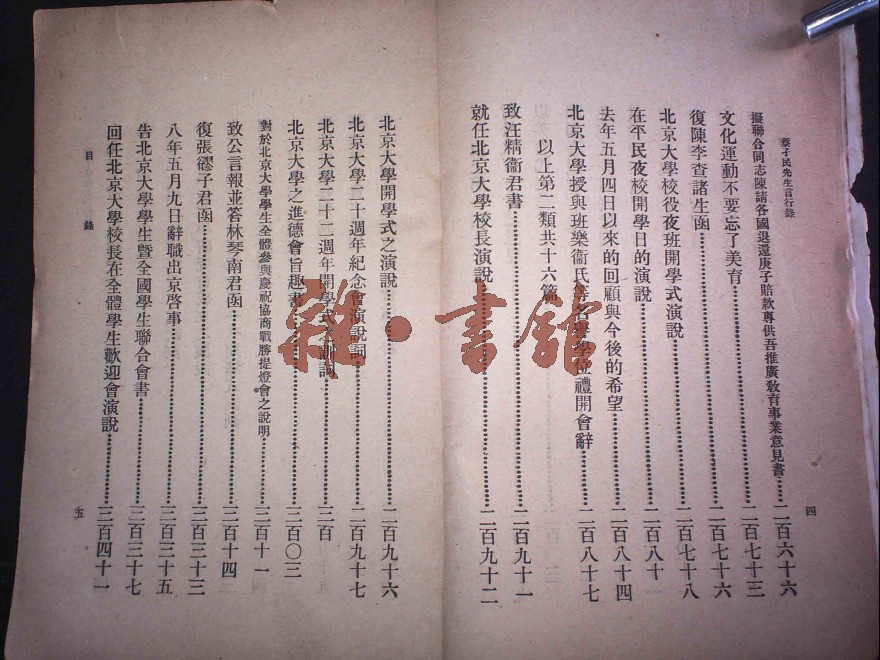 蔡孑民先生言行錄
四
擬聯合同志陳請各國退還庚子賠款專供吾推廣教育事業意見書……二百六十六
文化運動不要忘了美育……二百七十三
復陳李查諸生函……二百七十六
北京大學校役夜班開學式演說……二百七十八
在平民夜校開學日的演說……二百八十一
去年五月四日以來的回顧與今後的希望……二百八十四
北京大學授與班樂衞氏等名譽學位禮開會辭……二百八十七
以上第二類共十六篇
致汪精衞君書……二百九十一
就任北京大學校長演說……二百九十二
北京大學開學式之演說……二百九十六
北京大學二十週年紀念會演說詞……二百九十七
北京大學二十二週年開學式之訓詞……三百
北京大學之進德會旨趣書……三百〇三
對於北京大學學生全體參與慶祝協商戰勝提燈會之說明……三百十一
致公言報並答林琴南君函……三百十四
復張繆子君函……三百三十三
八年五月九日辭職出京啓事……三百三十五
告北京大學學生暨全國學生聯合會書……三百三十七
回任北京大學校長在全體學生歡迎會演說……三百四十一
目錄
五
雜·書館